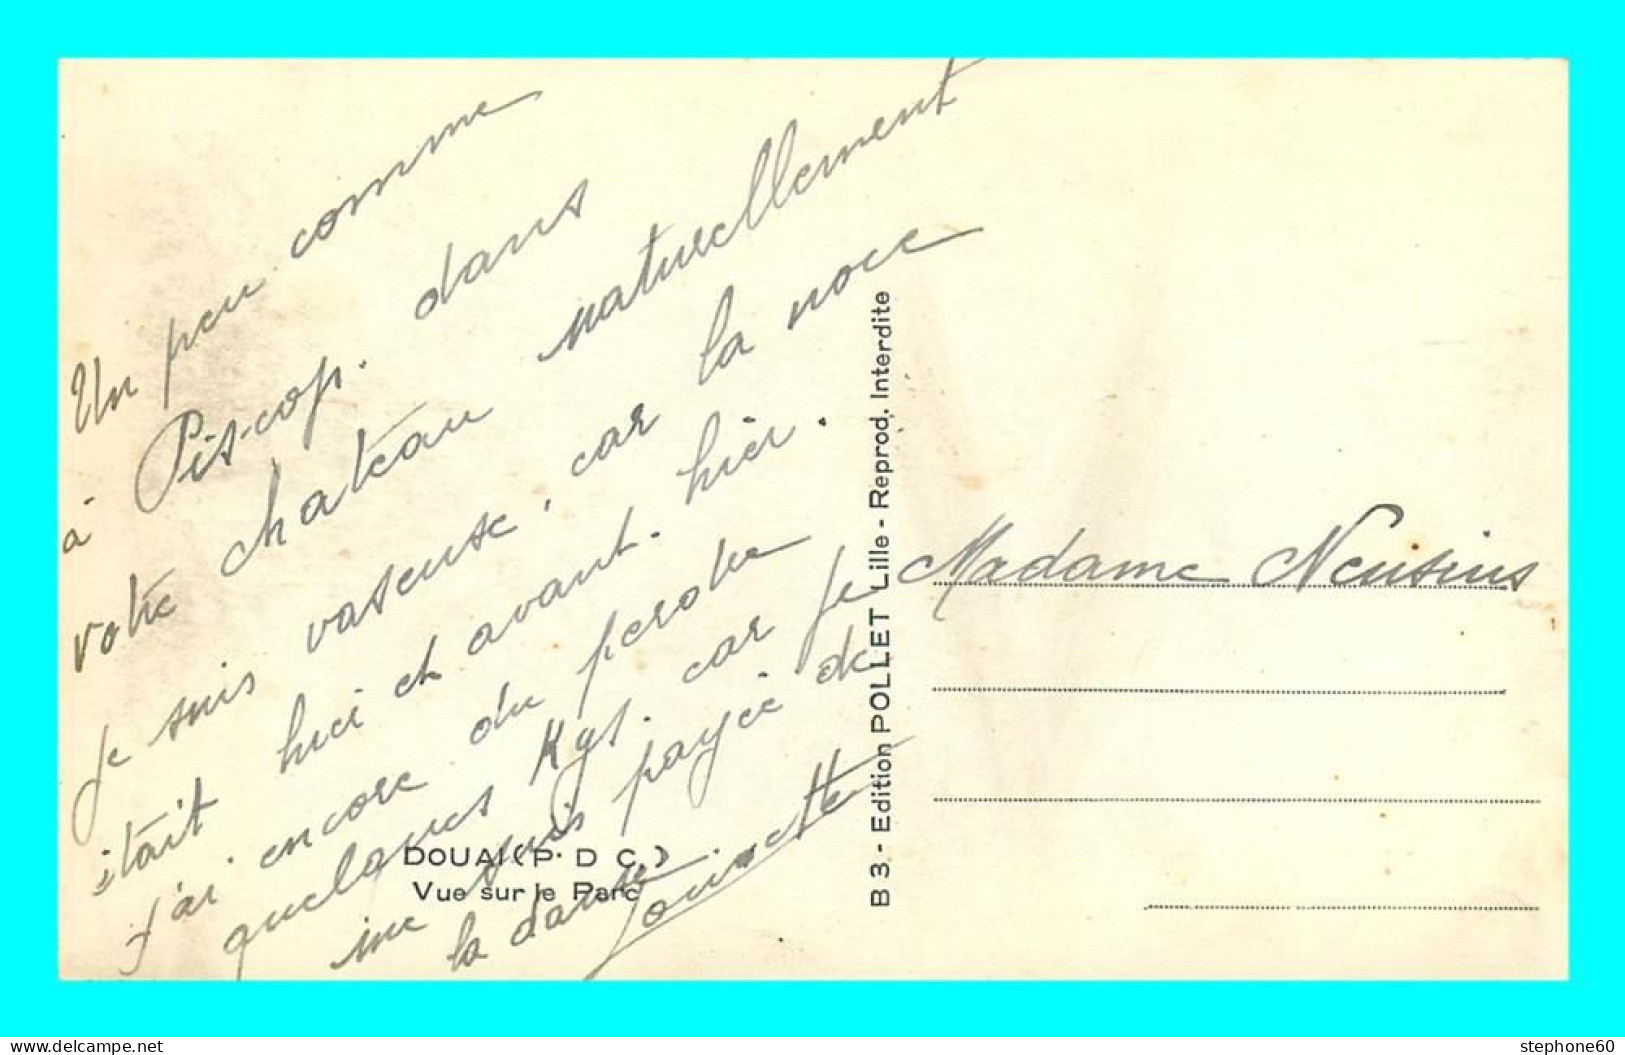 Un peu comme
à Pis-cop. dans
votre chateau naturellement
Je suis vaseuse, car la noce
était hier et avant-hier.
J'ai encore du perdre
quelques Kgs. car je
me suis payée de
la danse.
Louisette
DOUAI (P. D C.)
Vue sur le Parc
B 3 - Edition POLLET Lille - Reprod. Interdite
Madame Neusius
www.delcampe.net
stephone60